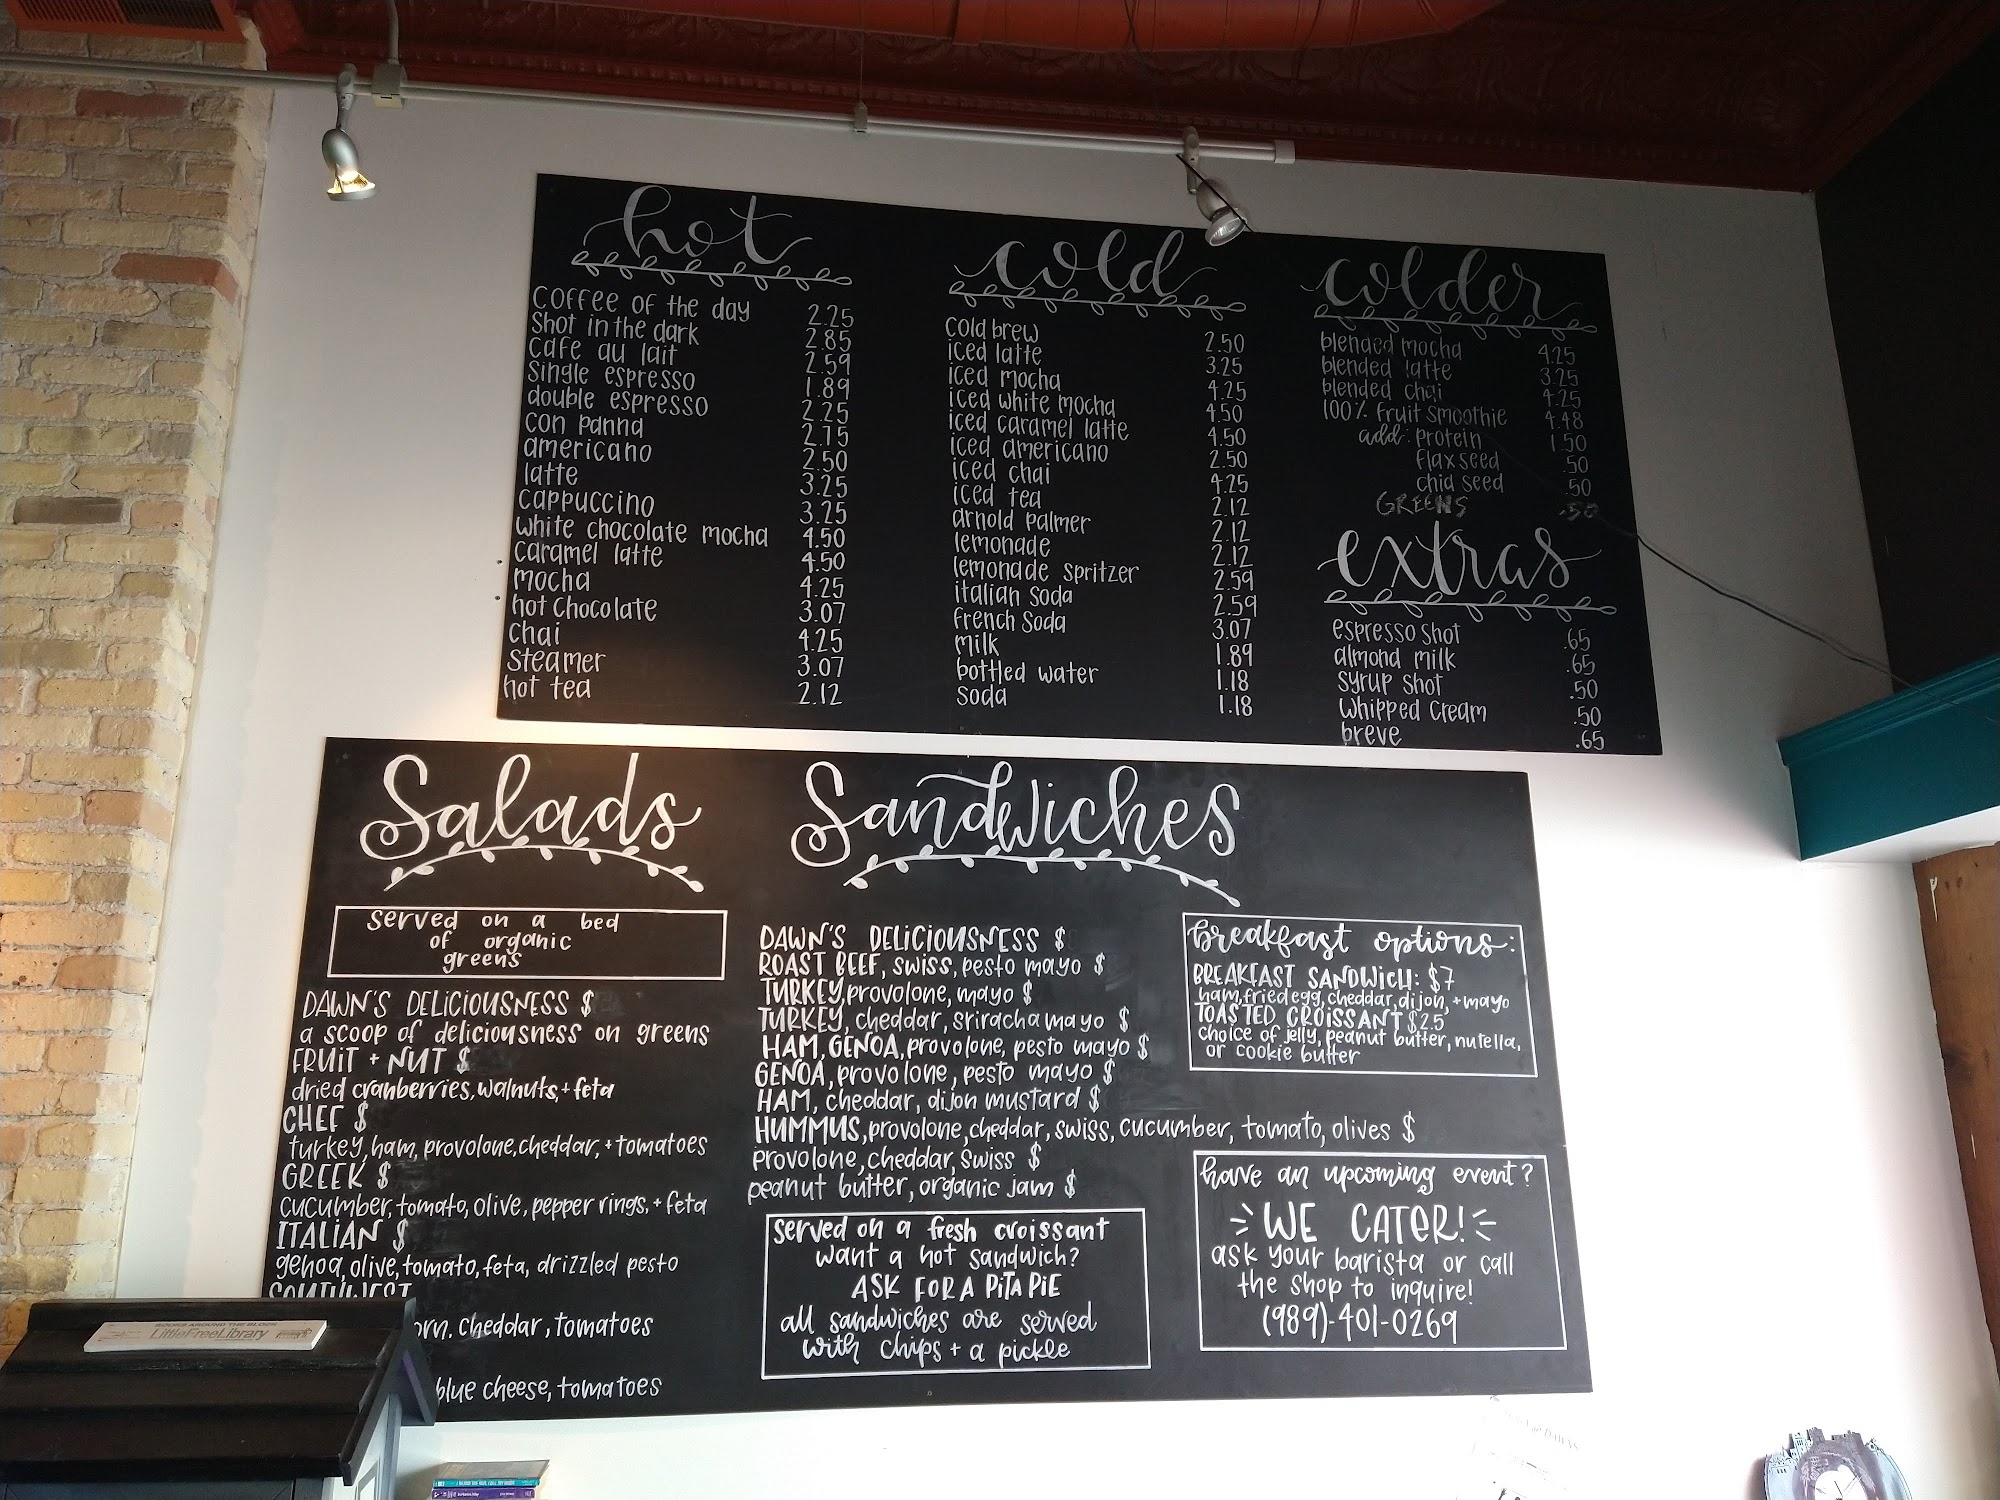 hot
coffee of the day 2.25
shot in the dark 2.85
cafe au lait 2.59
single espresso 1.89
double espresso 2.25
con panna 2.75
americano 2.50
latte 3.25
cappuccino 3.25
white chocolate mocha 4.50
caramel latte 4.50
mocha 4.25
hot chocolate 3.07
chai 4.25
steamer 3.07
hot tea 2.12
cold
cold brew 2.50
iced latte 3.25
iced mocha 4.25
iced white mocha 4.50
iced caramel latte 4.50
iced americano 2.50
iced chai 4.25
iced tea 2.12
arnold palmer 2.12
lemonade 2.12
lemonade spritzer 2.59
italian soda 2.59
french soda 3.07
milk 1.89
bottled water 1.18
soda 1.18
colder
blended mocha 4.25
blended latte 3.25
blended chai 4.25
100% fruit smoothie 4.48
add: protein 1.50
flax seed .50
chia seed .50
GREENS .50
extras
espresso shot .65
almond milk .65
syrup shot .50
whipped cream .50
breve .65
Salads
served on a bed
of organic
greens
DAWN'S DELICIOUSNESS $
a scoop of deliciousness on greens
FRUIT + NUT $
dried cranberries, walnuts, + feta
CHEF $
turkey, ham, provolone, cheddar, + tomatoes
GREEK $
cucumber, tomato, olive, pepper rings, + feta
ITALIAN $
genoa, olive, tomato, feta, drizzled pesto
SOUTHWEST
orn, cheddar, tomatoes
blue cheese, tomatoes
Sandwiches
DAWN'S DELICIOUSNESS $
ROAST BEEF, swiss, pesto mayo $
TURKEY, provolone, mayo $
TURKEY, cheddar, sriracha mayo $
HAM, GENOA, provolone, pesto mayo $
GENOA, provolone, pesto mayo $
HAM, cheddar, dijon mustard $
HUMMUS, provolone, cheddar, swiss, cucumber, tomato, olives $
provolone, cheddar, swiss $
peanut butter, organic jam $
served on a fresh croissant
want a hot sandwich?
ASK FOR A PITA PIE
all sandwiches are served
with chips + a pickle
breakfast options:
BREAKFAST SANDWICH: $7
ham, fried egg, cheddar, dijon, + mayo
TOASTED CROISSANT $2.5
choice of jelly, peanut butter, nutella,
or cookie butter
have an upcoming event?
WE CATER!
ask your barista or call
the shop to inquire!
(989)-401-0269
BOOKS AROUND THE BLOCK
LittleFreeLibrary